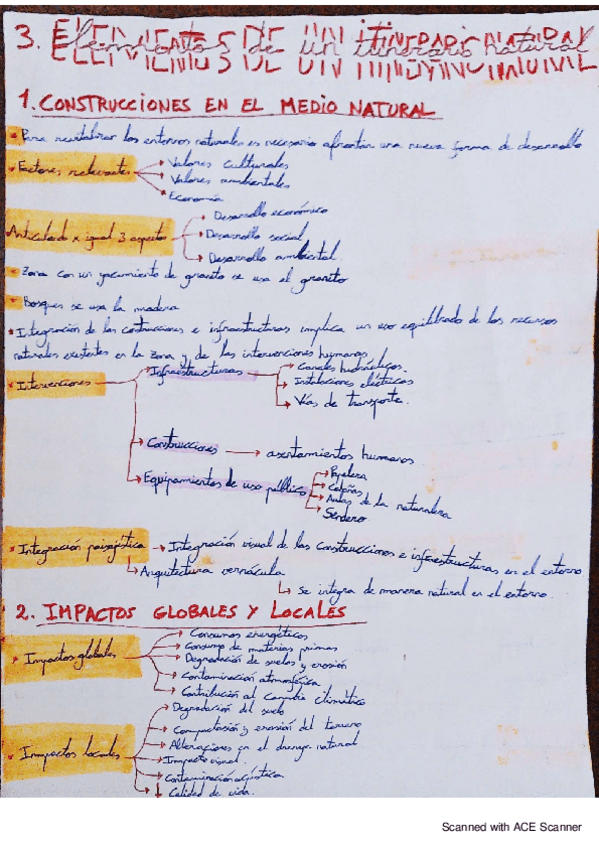 3. Elementos de un itinerario natural
1. CONSTRUCCIONES EN EL MEDIO NATURAL
Para revitalizar los entornos naturales es necesario afrontar una nueva forma de desarrollo
Factores relevantes → Valores culturales
→ Valores ambientales
→ Economía
Articulado x igual 3 aspectos → Desarrollo económico
→ Desarrollo social
→ Desarrollo ambiental
Zona con un yacimiento de granito se usa el granito
Bosques se usa la madera
Integración de las construcciones e infraestructuras implica un uso equilibrado de los recursos
naturales existentes en la zona y de las intervenciones humanas
Intervenciones → Infraestructuras → Canales hidráulicos.
→ Instalaciones eléctricas
→ Vías de transporte.
→ Construcciones → asentamientos humanos
→ Equipamientos de uso público → Papelera
→ Cabañas
→ Aulas de la naturaleza
→ Sendero
Integración paisajística → Integración visual de las construcciones e infraestructuras en el entorno
↳ Arquitectura vernácula
↳ Se integra de manera natural en el entorno.
2. IMPACTOS GLOBALES Y LOCALES
Impactos globales → Consumos energéticos
→ Consumo de materias primas
→ Degradación de suelos y erosión
→ Contaminación atmosférica
→ Contribución al cambio climático
Impactos locales → Degradación del suelo
→ Compactación y erosión del terreno
→ Alteraciones en el drenaje natural
→ Impacto visual.
→ Contaminación acústica
↓ Calidad de vida.
Scanned with ACE Scanner